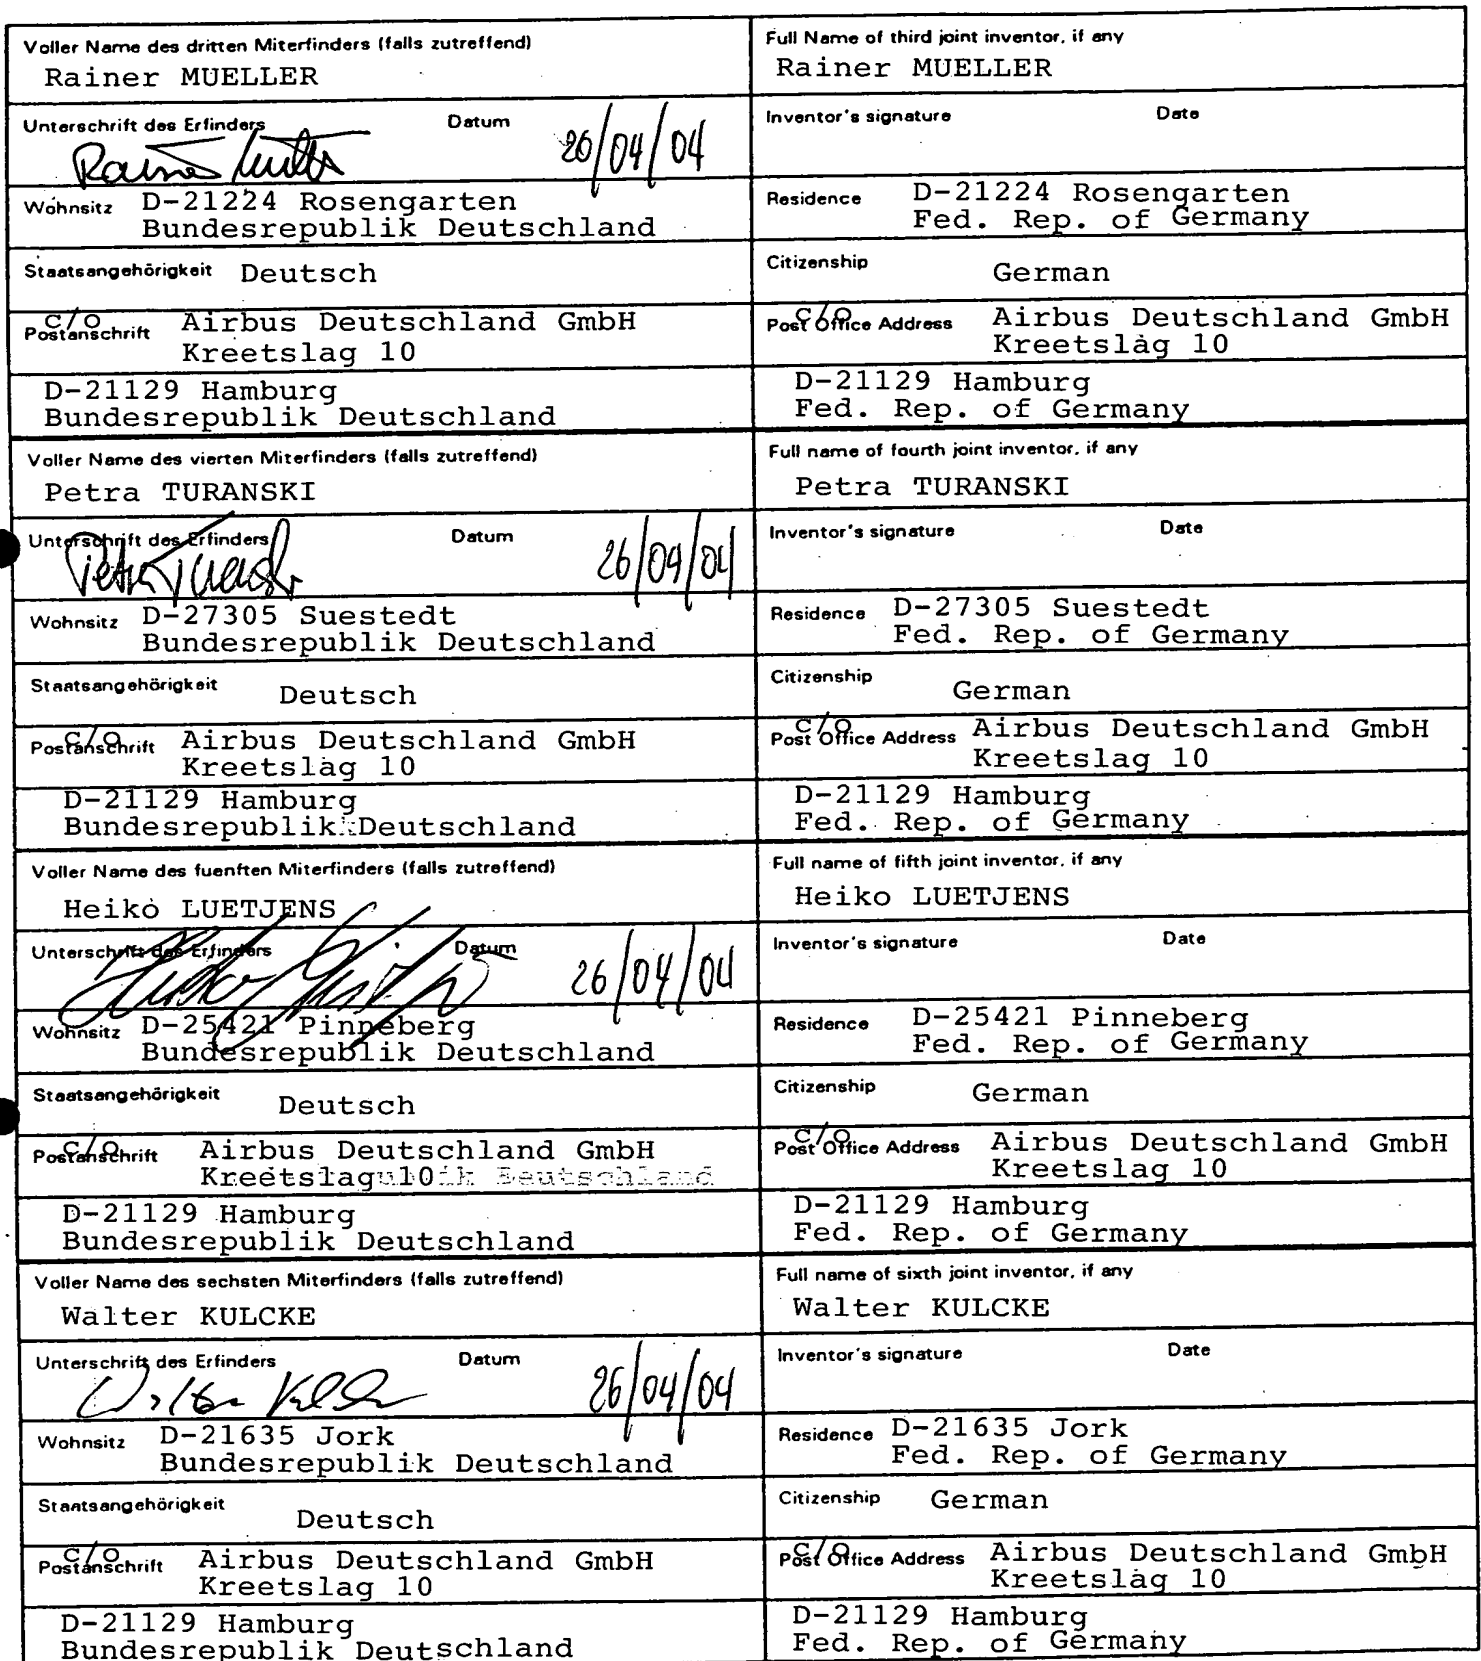 Voller Name des dritten Miterfinders (falls zutreffend)
Rainer MUELLER
Full Name of third joint inventor, if any
Rainer MUELLER
Unterschrift des Erfinders Datum
26/04/04
Inventor's signature Date
Wohnsitz D-21224 Rosengarten
Bundesrepublik Deutschland
Residence D-21224 Rosengarten
Fed. Rep. of Germany
Staatsangehörigkeit Deutsch
Citizenship German
c/o
Postanschrift Airbus Deutschland GmbH
Kreetslag 10
c/o
Post Office Address Airbus Deutschland GmbH
Kreetslag 10
D-21129 Hamburg
Bundesrepublik Deutschland
D-21129 Hamburg
Fed. Rep. of Germany
Voller Name des vierten Miterfinders (falls zutreffend)
Petra TURANSKI
Full name of fourth joint inventor, if any
Petra TURANSKI
Unterschrift des Erfinders Datum
26/04/04
Inventor's signature Date
Wohnsitz D-27305 Suestedt
Bundesrepublik Deutschland
Residence D-27305 Suestedt
Fed. Rep. of Germany
Staatsangehörigkeit Deutsch
Citizenship German
c/o
Postanschrift Airbus Deutschland GmbH
Kreetslag 10
c/o
Post Office Address Airbus Deutschland GmbH
Kreetslag 10
D-21129 Hamburg
Bundesrepublik Deutschland
D-21129 Hamburg
Fed. Rep. of Germany
Voller Name des fuenften Miterfinders (falls zutreffend)
Heiko LUETJENS
Full name of fifth joint inventor, if any
Heiko LUETJENS
Unterschrift des Erfinders Datum
26/04/04
Inventor's signature Date
Wohnsitz D-25421 Pinneberg
Bundesrepublik Deutschland
Residence D-25421 Pinneberg
Fed. Rep. of Germany
Staatsangehörigkeit Deutsch
Citizenship German
c/o
Postanschrift Airbus Deutschland GmbH
Kreetslag 10
c/o
Post Office Address Airbus Deutschland GmbH
Kreetslag 10
D-21129 Hamburg
Bundesrepublik Deutschland
D-21129 Hamburg
Fed. Rep. of Germany
Voller Name des sechsten Miterfinders (falls zutreffend)
Walter KULCKE
Full name of sixth joint inventor, if any
Walter KULCKE
Unterschrift des Erfinders Datum
26/04/04
Inventor's signature Date
Wohnsitz D-21635 Jork
Bundesrepublik Deutschland
Residence D-21635 Jork
Fed. Rep. of Germany
Staatsangehörigkeit Deutsch
Citizenship German
c/o
Postanschrift Airbus Deutschland GmbH
Kreetslag 10
c/o
Post Office Address Airbus Deutschland GmbH
Kreetslag 10
D-21129 Hamburg
Bundesrepublik Deutschland
D-21129 Hamburg
Fed. Rep. of Germany